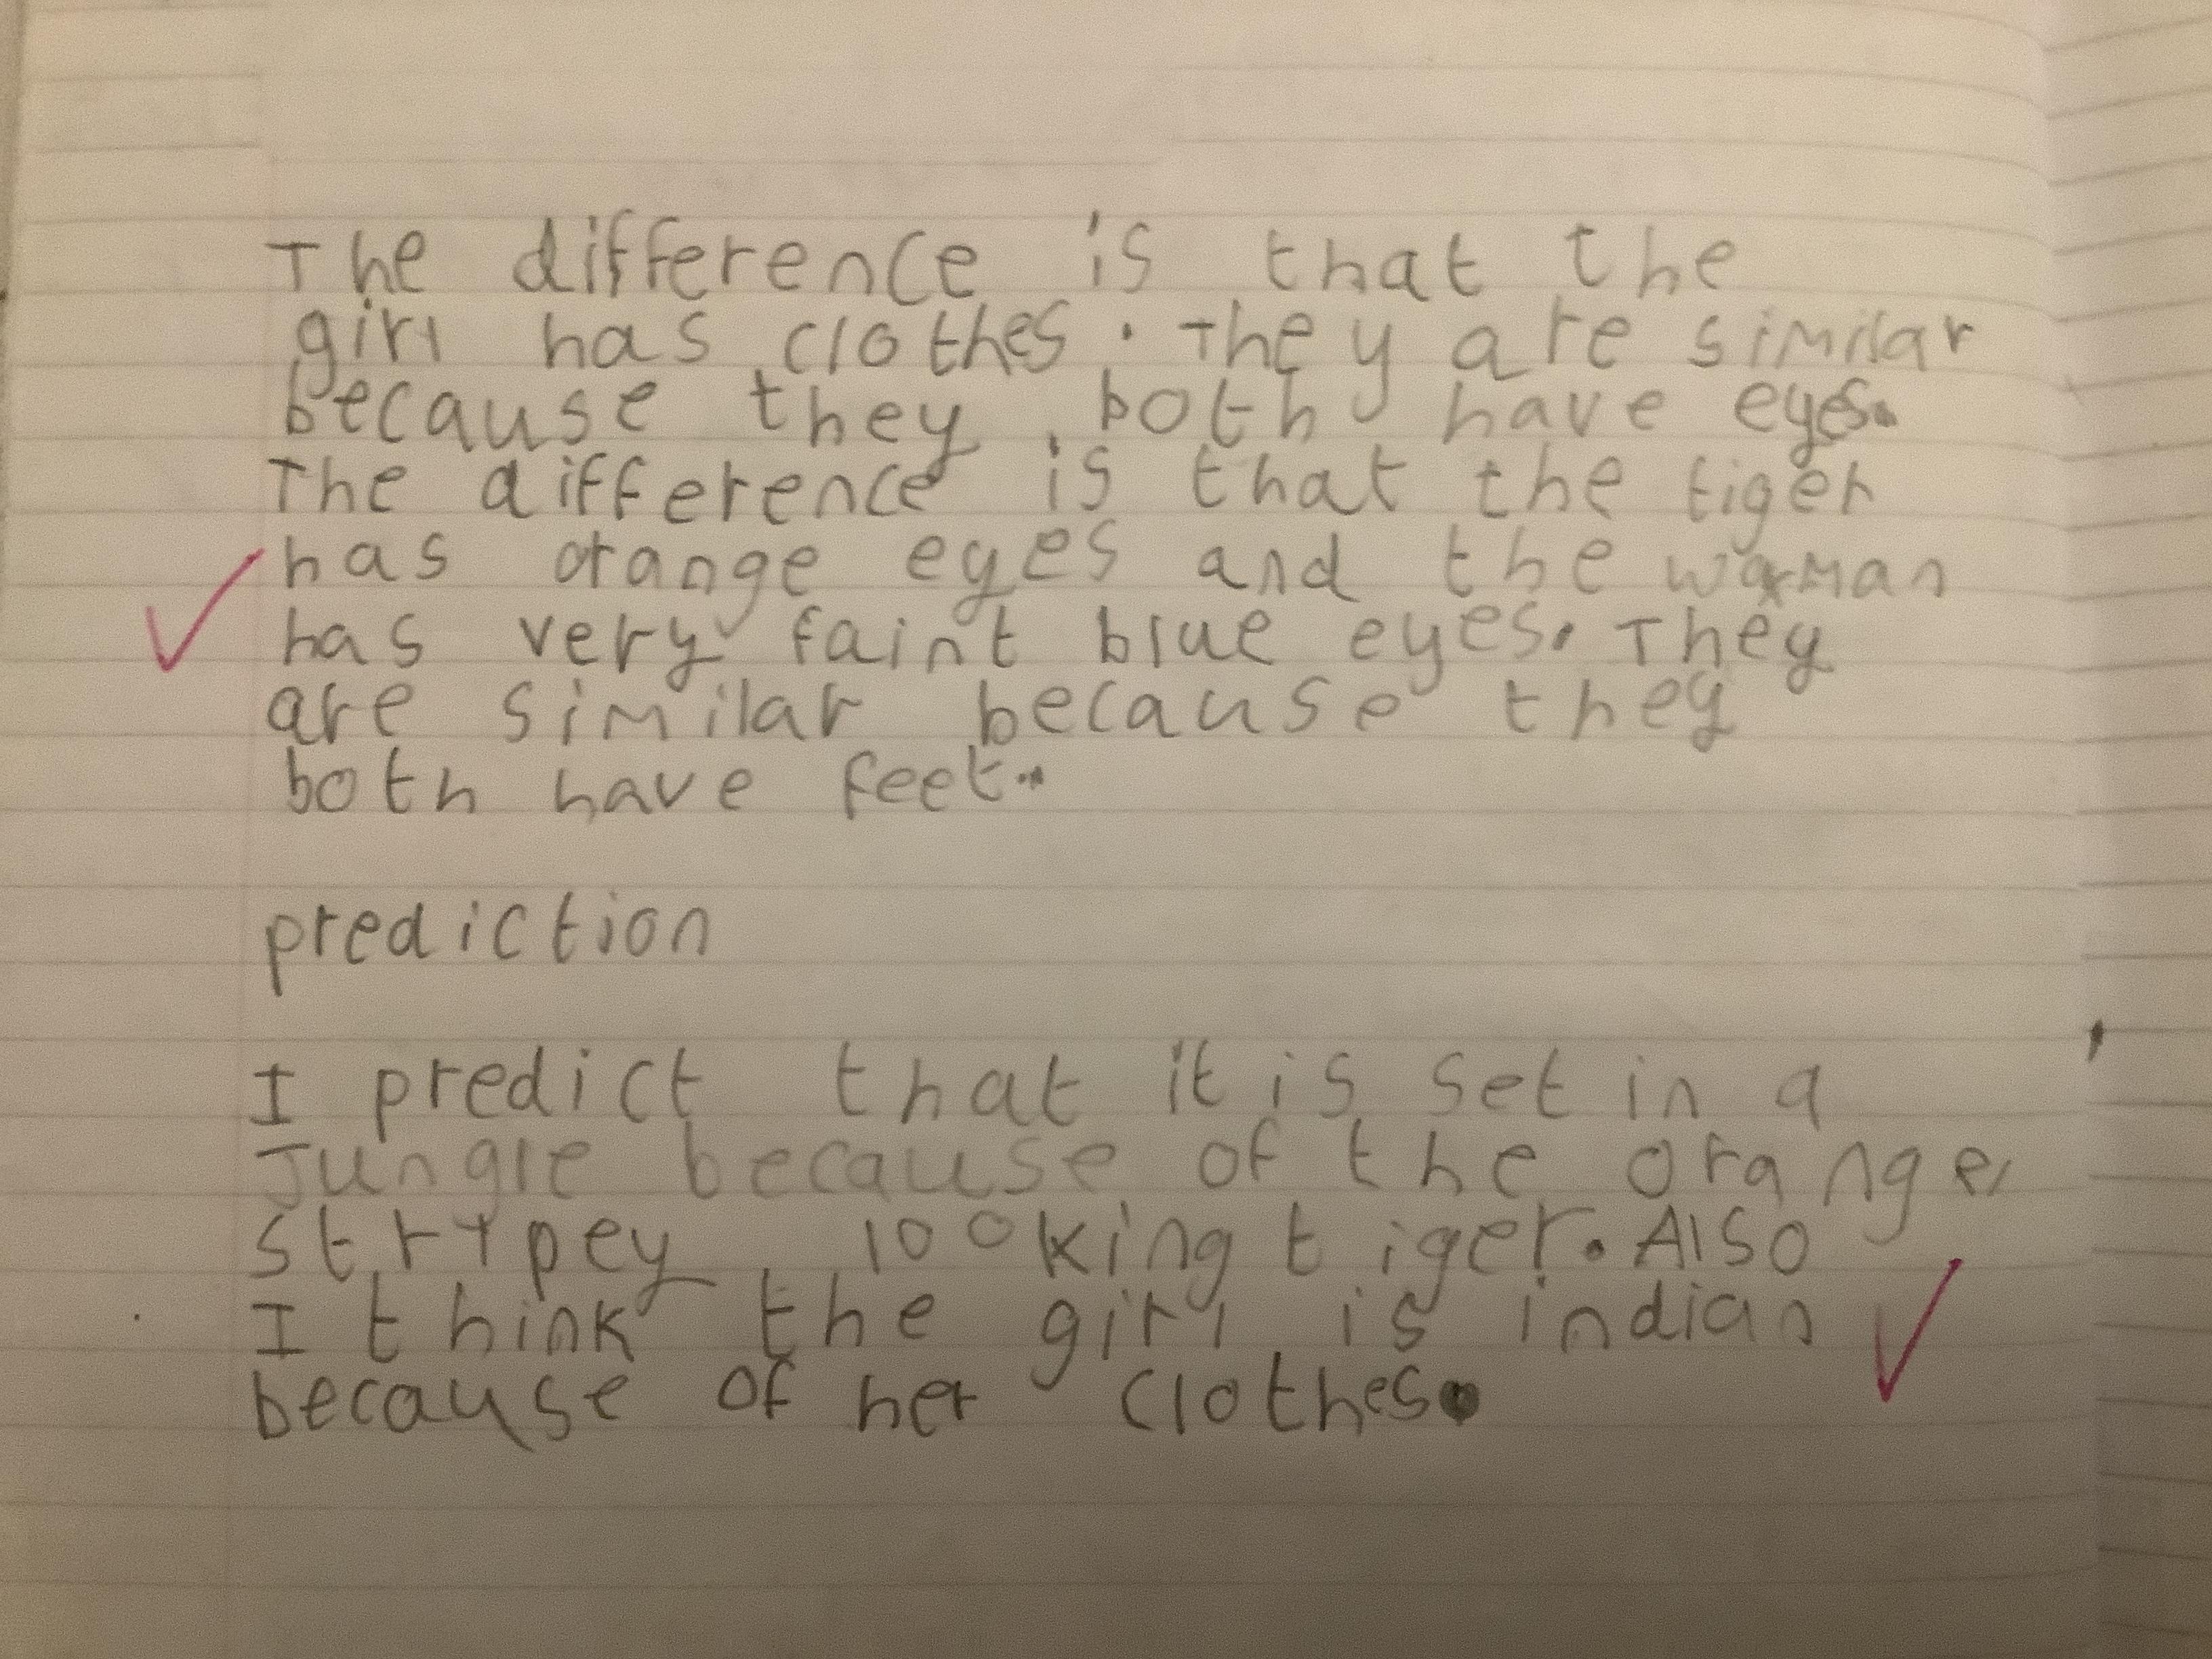 The difference is that the
girl has clothes. They are similar
because they both have eyes.
The difference is that the tiger
has orange eyes and the woman
has very faint blue eyes. They
are similar because they
both have feet.
prediction
I predict that it is set in a
Jungle because of the orange
stripey looking tiger. Also
I think the girl is indian
because of her clothes.